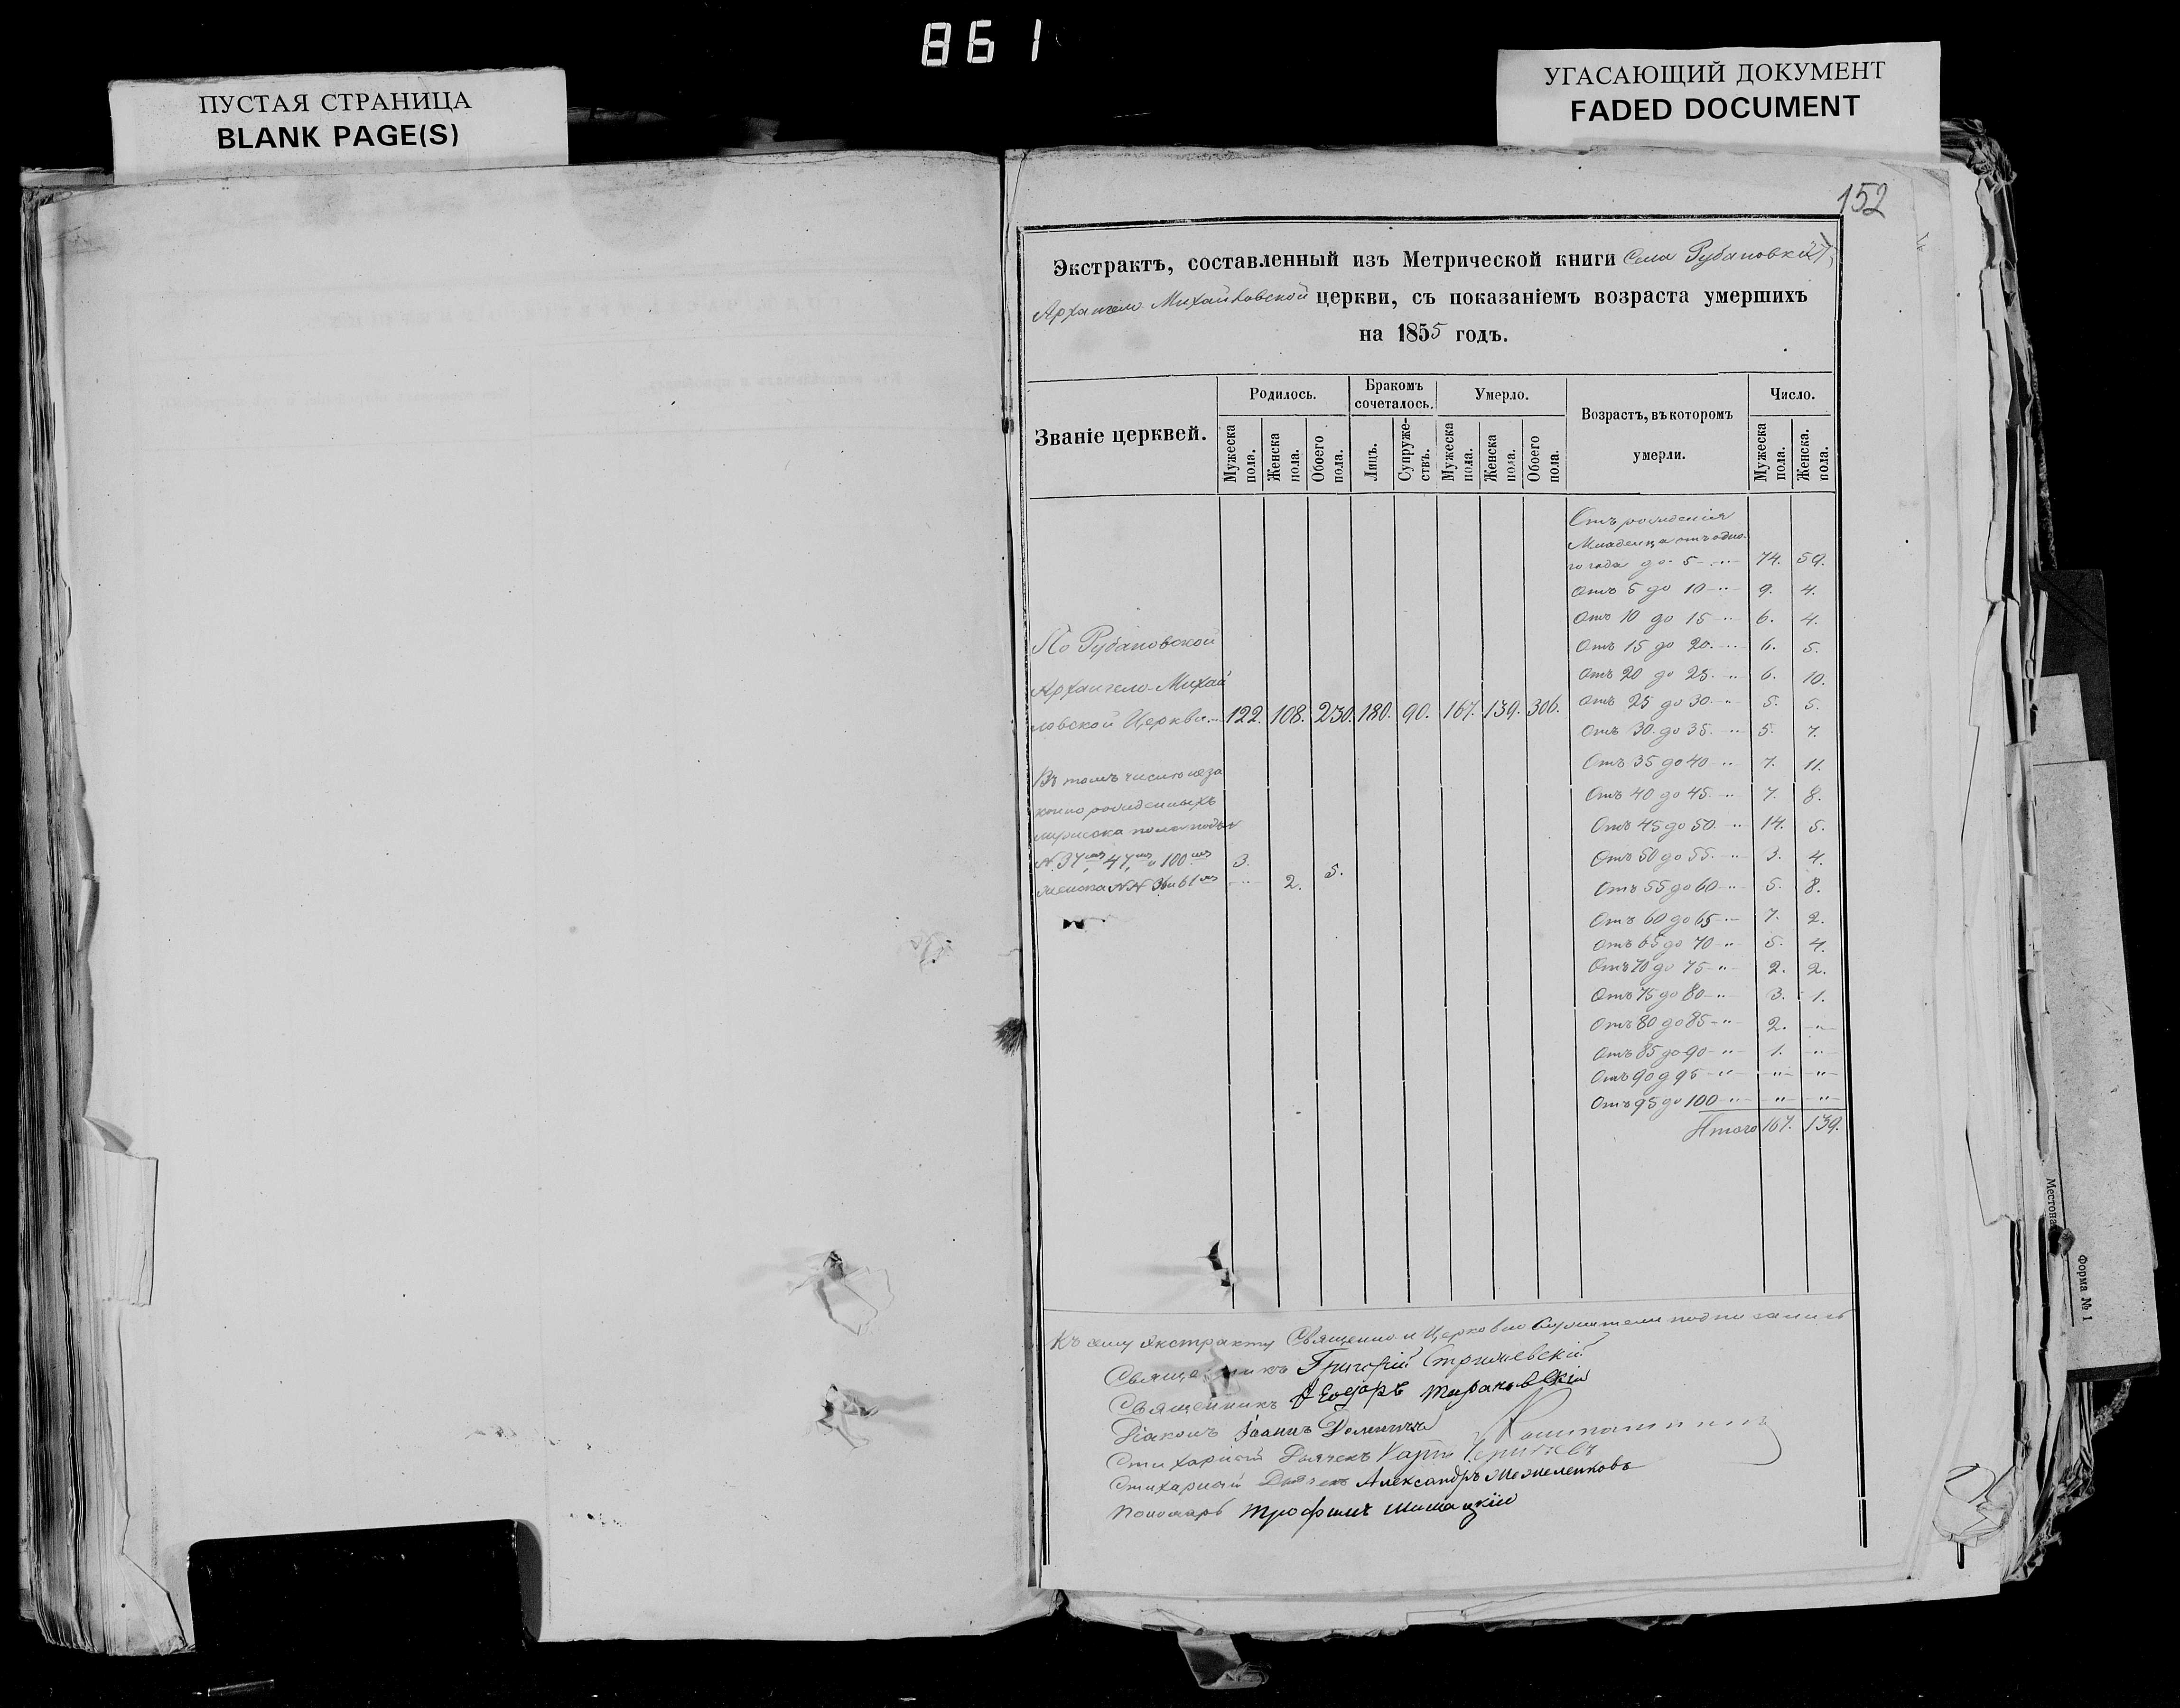 861
ПУСТАЯ СТРАНИЦА
BLANK PAGE(S)
УГАСАЮЩИЙ ДОКУМЕНТ
FADED DOCUMENT
152
Экстрактъ, составленный изъ Метрической книги Села Рубановки
Архангело Михайловской церкви, съ показаніемъ возраста умершихъ
на 1855 годъ.
Званіе церквей.
Родилось.
Мужеска пола.
Женска пола.
Обоего пола.
Бракомъ сочеталось.
Лицъ.
Супружествъ.
Умерло.
Мужеска пола.
Женска пола.
Обоего пола.
Возрастъ, въ которомъ
умерли.
Число.
Мужеска пола.
Женска. пола.
По Рубановской
Архангело-Михай
ловской Церкви 122. 108. 230. 180. 90. 167. 139. 306.
Въ томъ числѣ неза
конно рожденныхъ
мужеска пола подъ
N. 37, 47, и 100 3.
женска NN 36 и 61 2. 5.
Отъ рожденія
Младенца отъ одно-
го года до 5 74. 59.
Отъ 5 до 10 9. 4.
Отъ 10 до 15 6. 4.
Отъ 15 до 20. 6. 5.
Отъ 20 до 25. 6. 10.
Отъ 25 до 30 5. 5.
Отъ 30. до 35. 5. 7.
Отъ 35 до 40 7. 11.
Отъ 40 до 45. 7. 8.
Отъ 45 до 50. 14. 5.
Отъ 50 до 55. 3. 4.
Отъ 55 до 60 5. 8.
Отъ 60 до 65 7. 2.
Отъ 65 до 70 5. 4.
Отъ 70 до 75 2. 2.
Отъ 75 до 80 3. 1.
Отъ 80 до 85 2. "
Отъ 85 до 90 1. "
Отъ 90 д 95 " "
Отъ 95 до 100 " "
Итого 167. 139.
Къ сему Экстракту Священно и Церковно Служители подписались
Священникъ Григорій
Священникъ Ѳеодоръ Тарановскій
Діаконъ Іоаннъ
Стихарный Дьячекъ
Стихарный Дьячекъ Александръ
Пономарь Трофимъ
Местона
Форма № 1